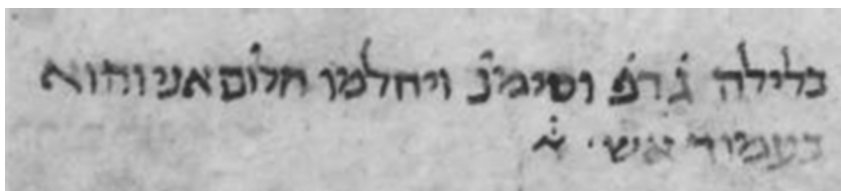 בלילה ג̇ ר̇פ̇ וסימנ̇ ויחלמו חלום אני והוא
בעמוד אש ·